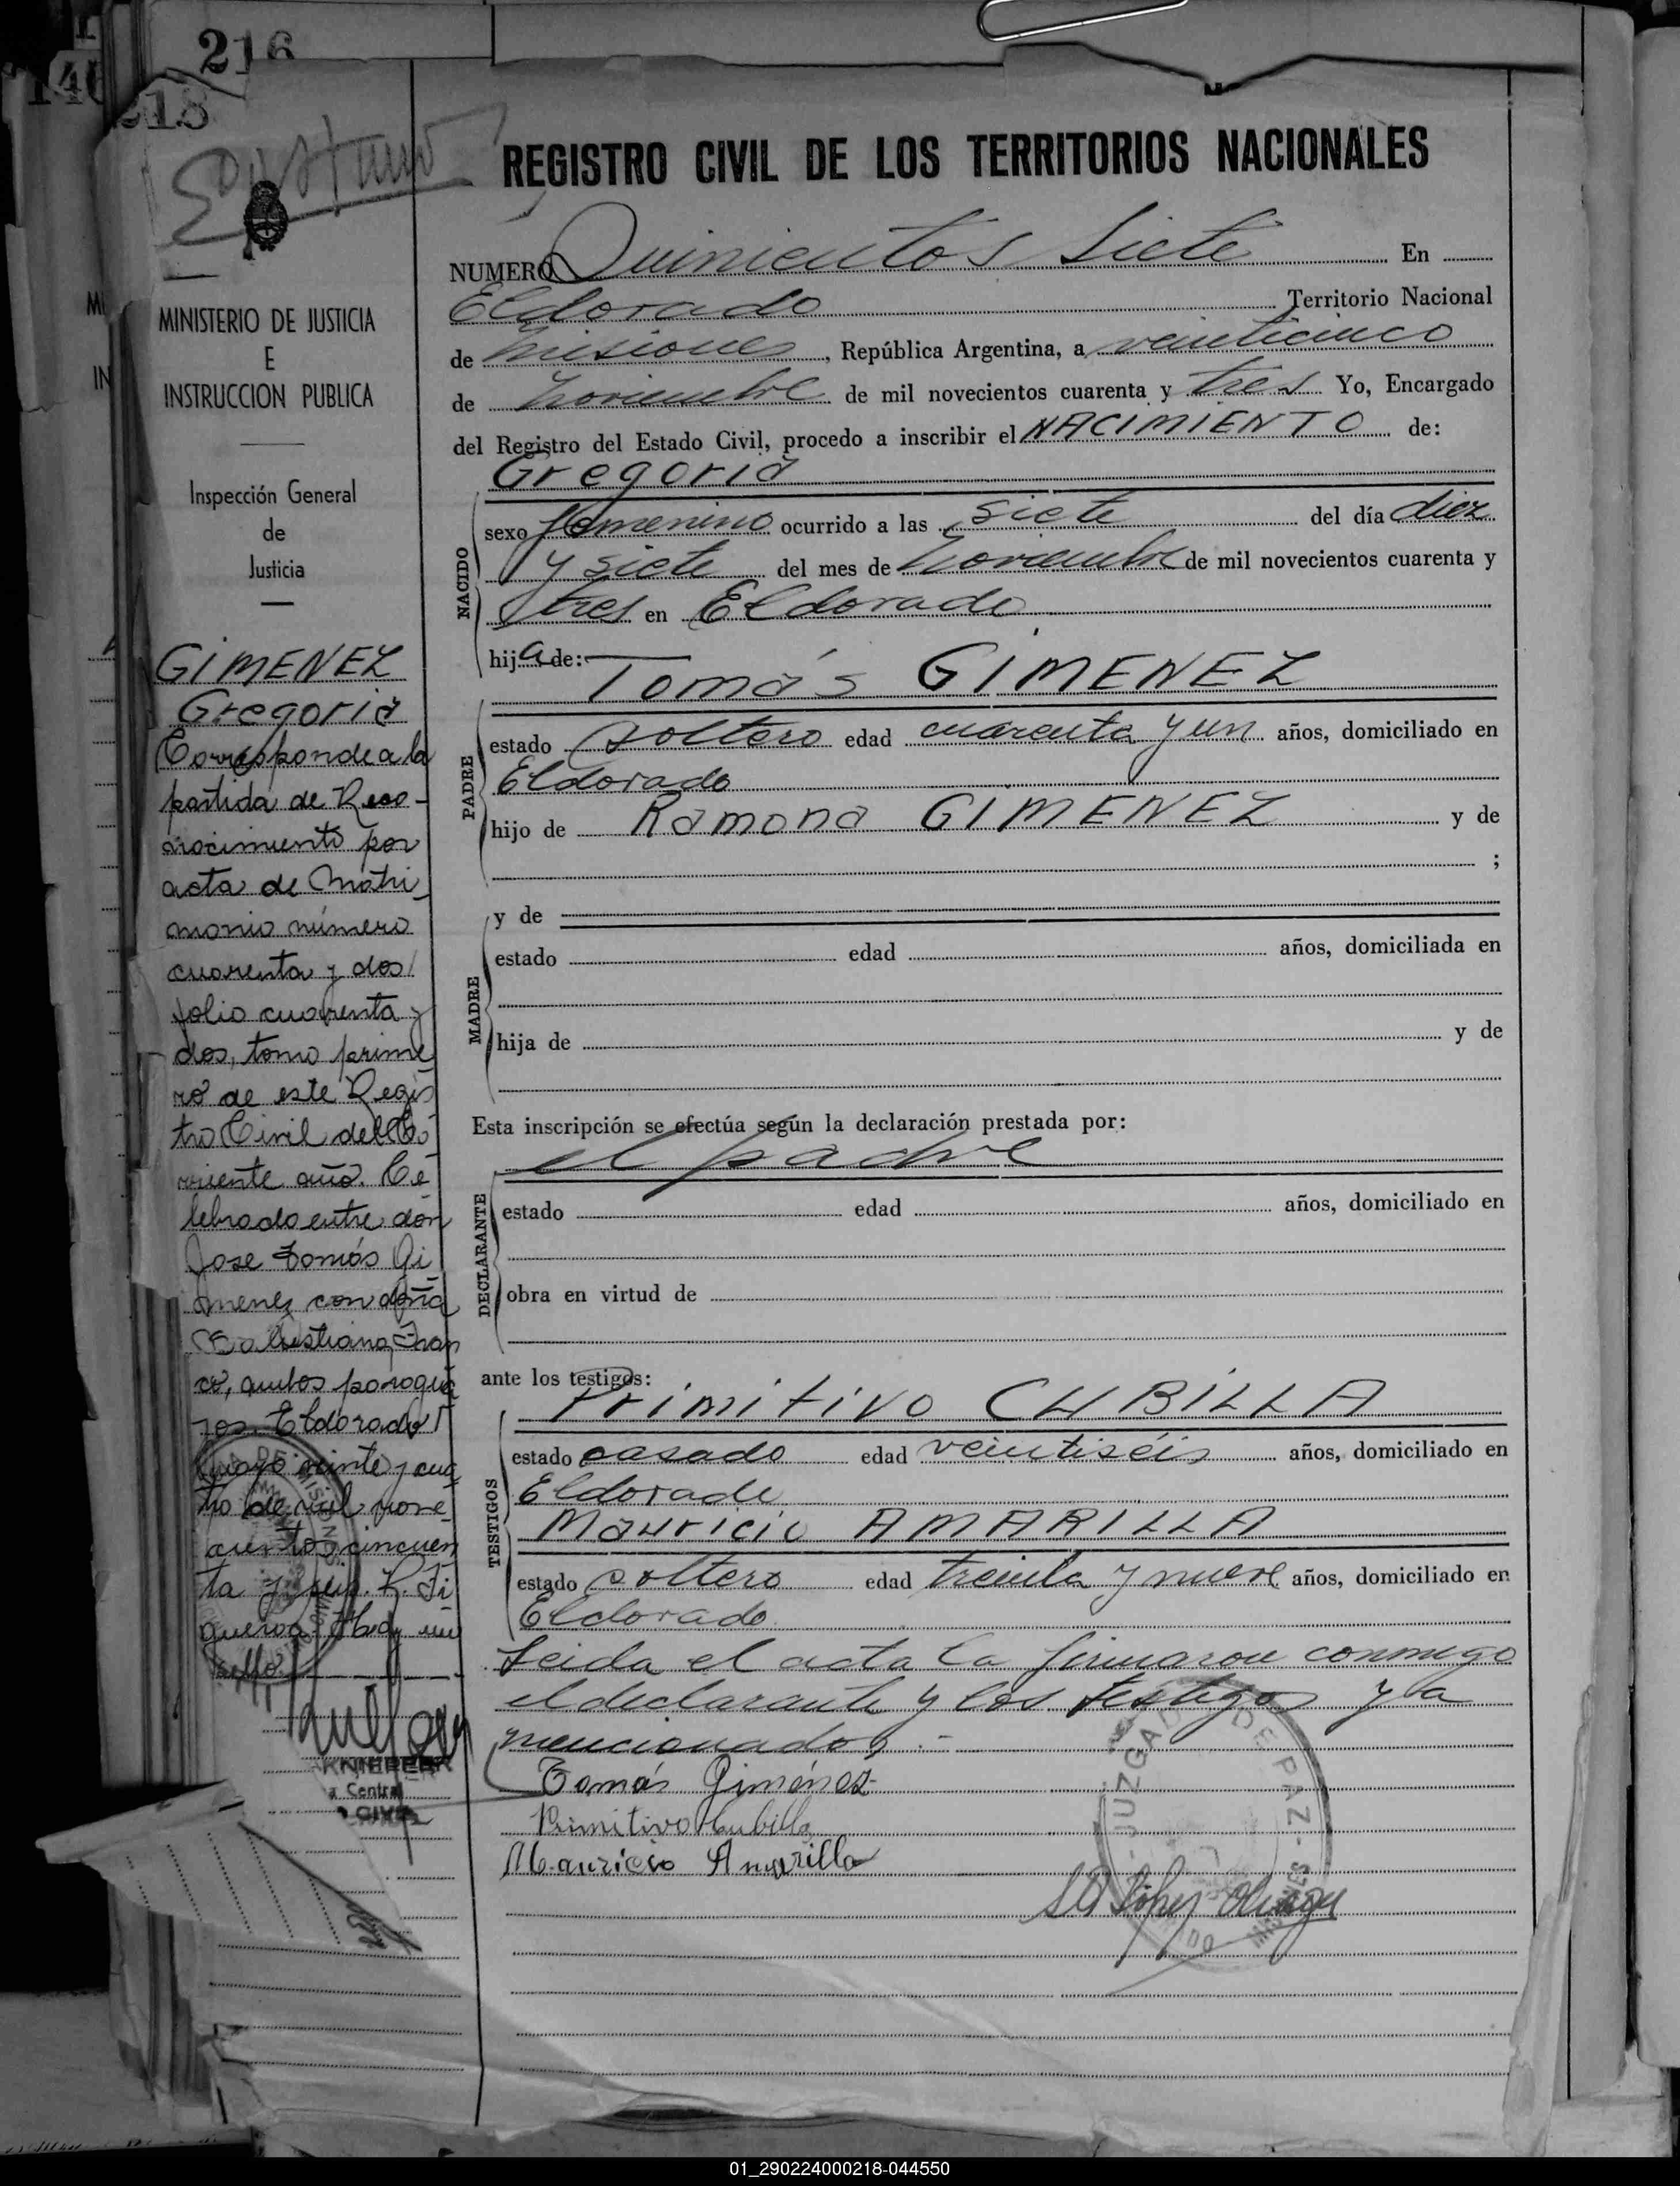 216
218
REGISTRO CIVIL DE LOS TERRITORIOS NACIONALES
NUMERO Quinientos Siete En
Eldorado Territorio Nacional
de Misiones, República Argentina, a veinticinco
de Noviembre de mil novecientos cuarenta y tres Yo, Encargado
del Registro del Estado Civil, procedo a inscribir el NACIMIENTO de:
Gregoria
NACIDO
sexo femenino ocurrido a las siete del día diez
y siete del mes de Noviembre de mil novecientos cuarenta y
tres en Eldorado
hija de:
Tomás GIMENEZ
PADRE
estado soltero edad cuarenta y un años, domiciliado en
Eldorado
hijo de Ramona GIMENEZ y de
;
MADRE
y de
estado edad años, domiciliada en
hija de y de
Esta inscripción se efectúa según la declaración prestada por:
el padre
DECLARANTE
estado edad años, domiciliado en
obra en virtud de
ante los testigos:
Primitivo CUBILLA
TESTIGOS
estado casado edad veintiséis años, domiciliado en
Eldorado
Mauricio AMARILLA
estado soltero edad treinta y nueve años, domiciliado en
Eldorado
Leida el acta la firmaron conmigo
el declarante y los testigos ya
mencionados.-
Tomás Giménez
Primitivo Cubilla
Mauricio Amarilla
JUZGADO DE PAZ - MISIONES
MINISTERIO DE JUSTICIA
E
INSTRUCCION PUBLICA
Inspección General
de
Justicia
GIMENEZ
Gregoria
Corresponde a la
partida de Reco-
nocimiento por
acta de Matri-
monio número
cuarenta y dos
folio cuarenta y
dos, tomo prime
ro de este Regis
tro Civil del Co
rriente año. Ce-
lebrado entre don
Jose Tomás Gi
menez con doña
Fran
co, ambos paragua
yos. Eldorado
mayo veinte y cua
tro de mil nove-
cientos cincuen
ta y seis.
KNIEPPER
a Central
CIVIL
01_290224000218-044550